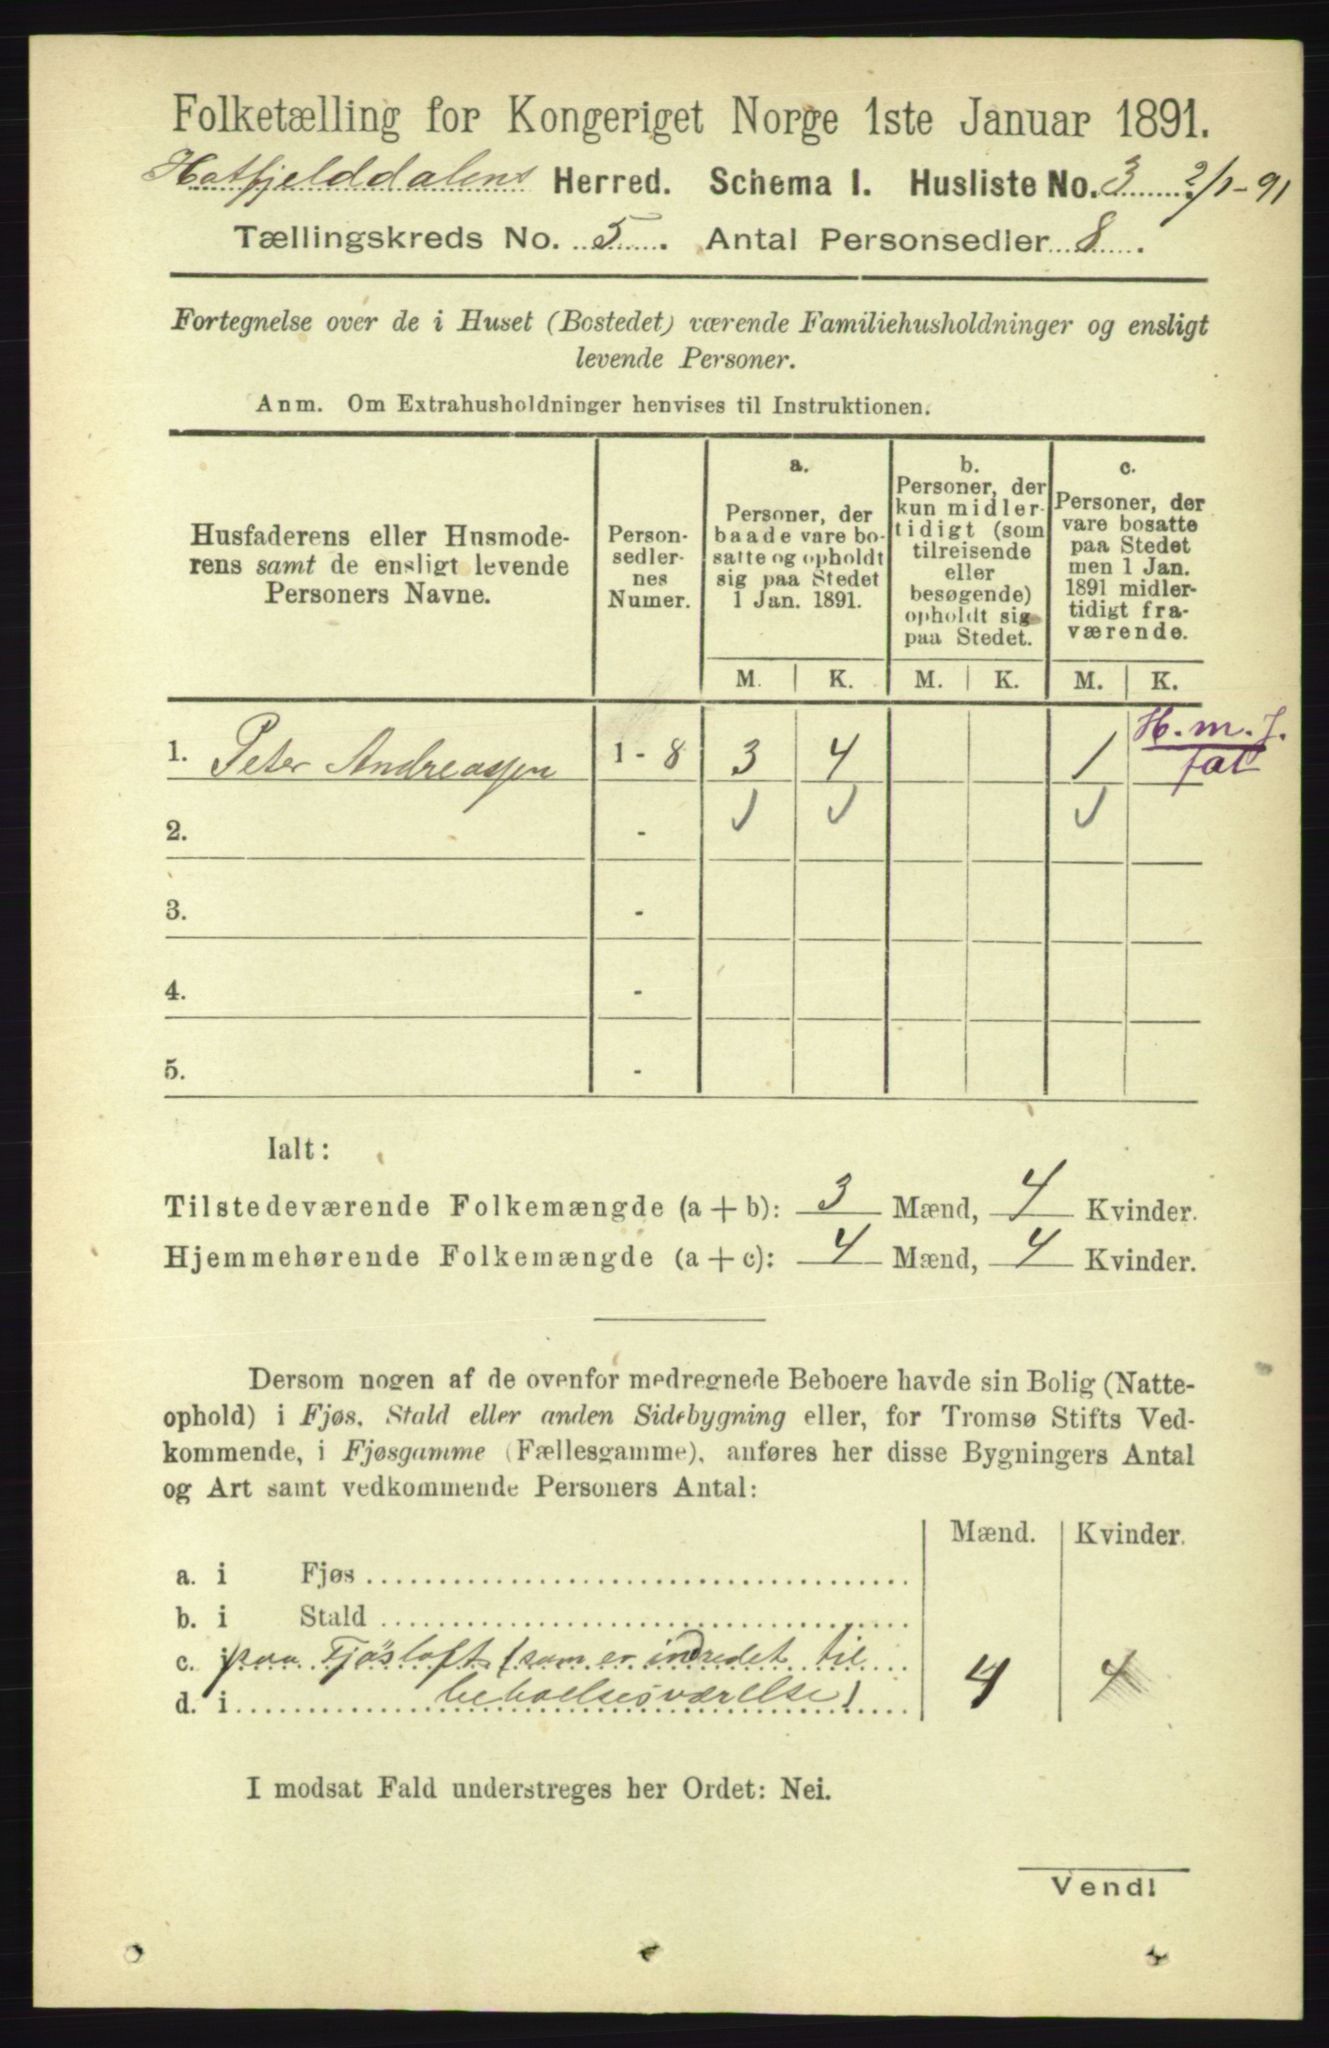 Folketælling for Kongeriget Norge 1ste Januar 1891.
Hatfjelddalens Herred. Schema I. Husliste No. 3 2/1-91
Tællingskreds No. 5. Antal Personsedler 8.
Fortegnelse over de i Huset (Bostedet) værende Familiehusholdninger og ensligt
levende Personer.
Anm. Om Extrahusholdninger henvises til Instruktionen.
Husfaderens eller Husmode-
rens samt de ensligt levende
Personers Navne.
Person-
sedler-
nes
Numer.
a.
Personer, der
baade vare bo-
satte og opholdt
sig paa Stedet
1 Jan. 1891.
b.
Personer, der
kun midler-
tidigt (som
tilreisende
eller
besøgende)
opholdt sig
paa Stedet.
c.
Personer, der
vare bosatte
paa Stedet
men 1 Jan.
1891 midler-
tidigt fra-
værende.
M. K. M. K. M. K.
1. Peter Andreassen 1 - 8 3 4 1 H. m. f.
fat
2. -
3. -
4. -
5. -
Ialt:
Tilstedeværende Folkemængde (a + b): 3 Mænd, 4 Kvinder.
Hjemmehørende Folkemængde (a + c): 4 Mænd, 4 Kvinder.
Dersom nogen af de ovenfor medregnede Beboere havde sin Bolig (Natte-
ophold) i Fjøs, Stald eller anden Sidebygning eller, for Tromsø Stifts Ved-
kommende, i Fjøsgamme (Fællesgamme), anføres her disse Bygningers Antal
og Art samt vedkommende Personers Antal:
Mænd. Kvinder.
a. i Fjøs
b. i Stald
c. i paa Fjøsloft (som er indredet til
d. i beboelsesværelse) 4 4
I modsat Fald understreges her Ordet: Nei.
Vend!